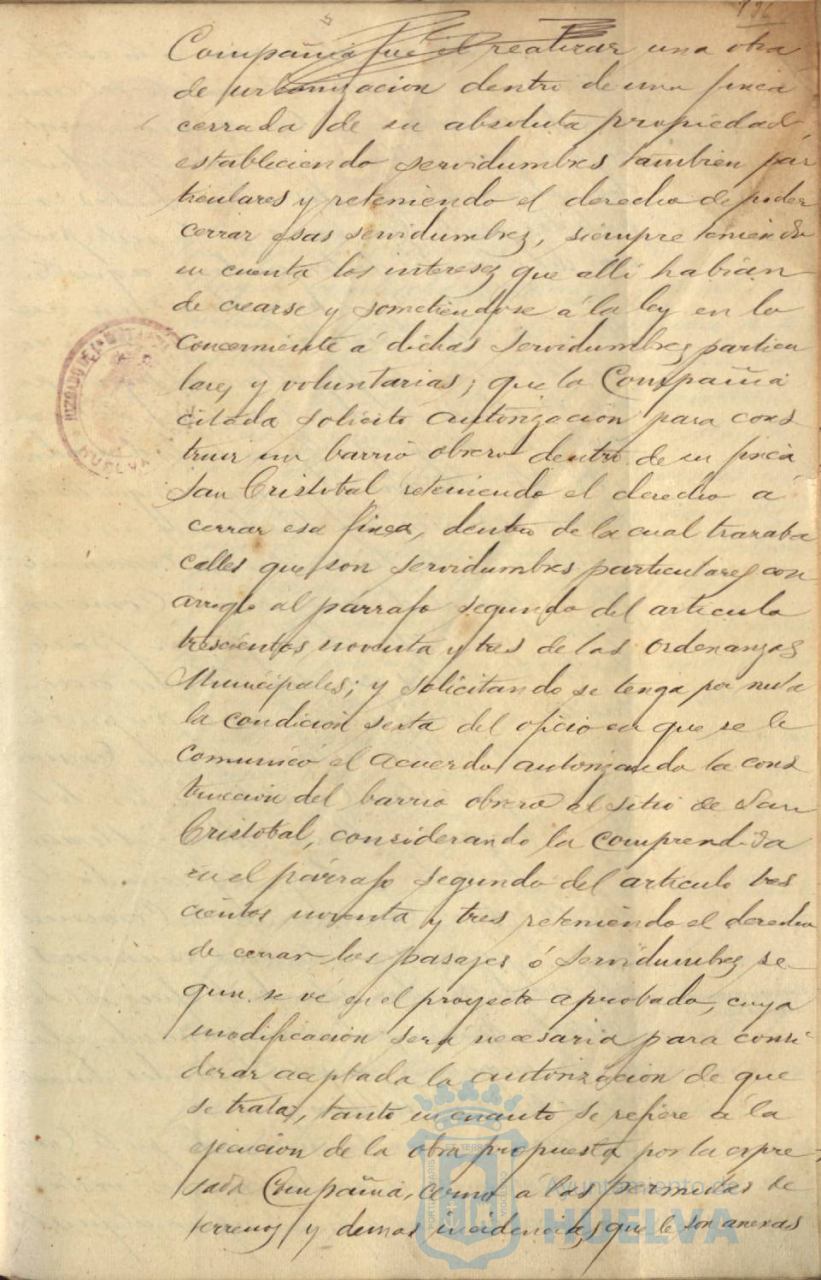 196
Compañía fué el realizar una obra
de urbanizacion dentro de una finca
cerrada de su absoluta propiedad,
estableciendo servidumbres tambien par
ticulares y reteniendo el derecho de poder
cerrar esas servidumbrez, siempre teniendo
en cuenta los interesez que alli habian
de crearse y sometiendose á la ley en lo
concerniente á dichas servidumbrez particu
lares y voluntarias; que la Compañia
citada solicitó autorizacion para cons
truir un barrio obrero dentro de su finca
San Cristobal reteniendo el derecho á
cerrar esa finca, dentro de la cual trazaba
calles que son servidumbres particulares con
arreglo al párrafo segundo del articulo
trescientos noventa y tres de las Ordenanzas
Municipales; y solicitando se tenga por nula
la condicion sexta del oficio en que se le
comunicó el acuerdo autorizando la cons
truccion del barrio obrero al sitio de San
Cristobal, considerando la comprendida
en el párrafo segundo del articulo tres
cientos noventa y tres reteniendo el derecho
de cerrar los pasajes ó servidumbrez se
gun se vé en el proyecto aprobado, cuya
modificacion será necesaria para consi
derar aceptada la autorizacion de que
se trata, tanto en cuanto se refiere á la
ejecucion de la obra propuesta por la expre
sada Compañia, como a las permutas de
terrenos y demas incidencias que le son anexas
JUZGADO DE
HUELVA
Ayuntamiento de
HUELVA